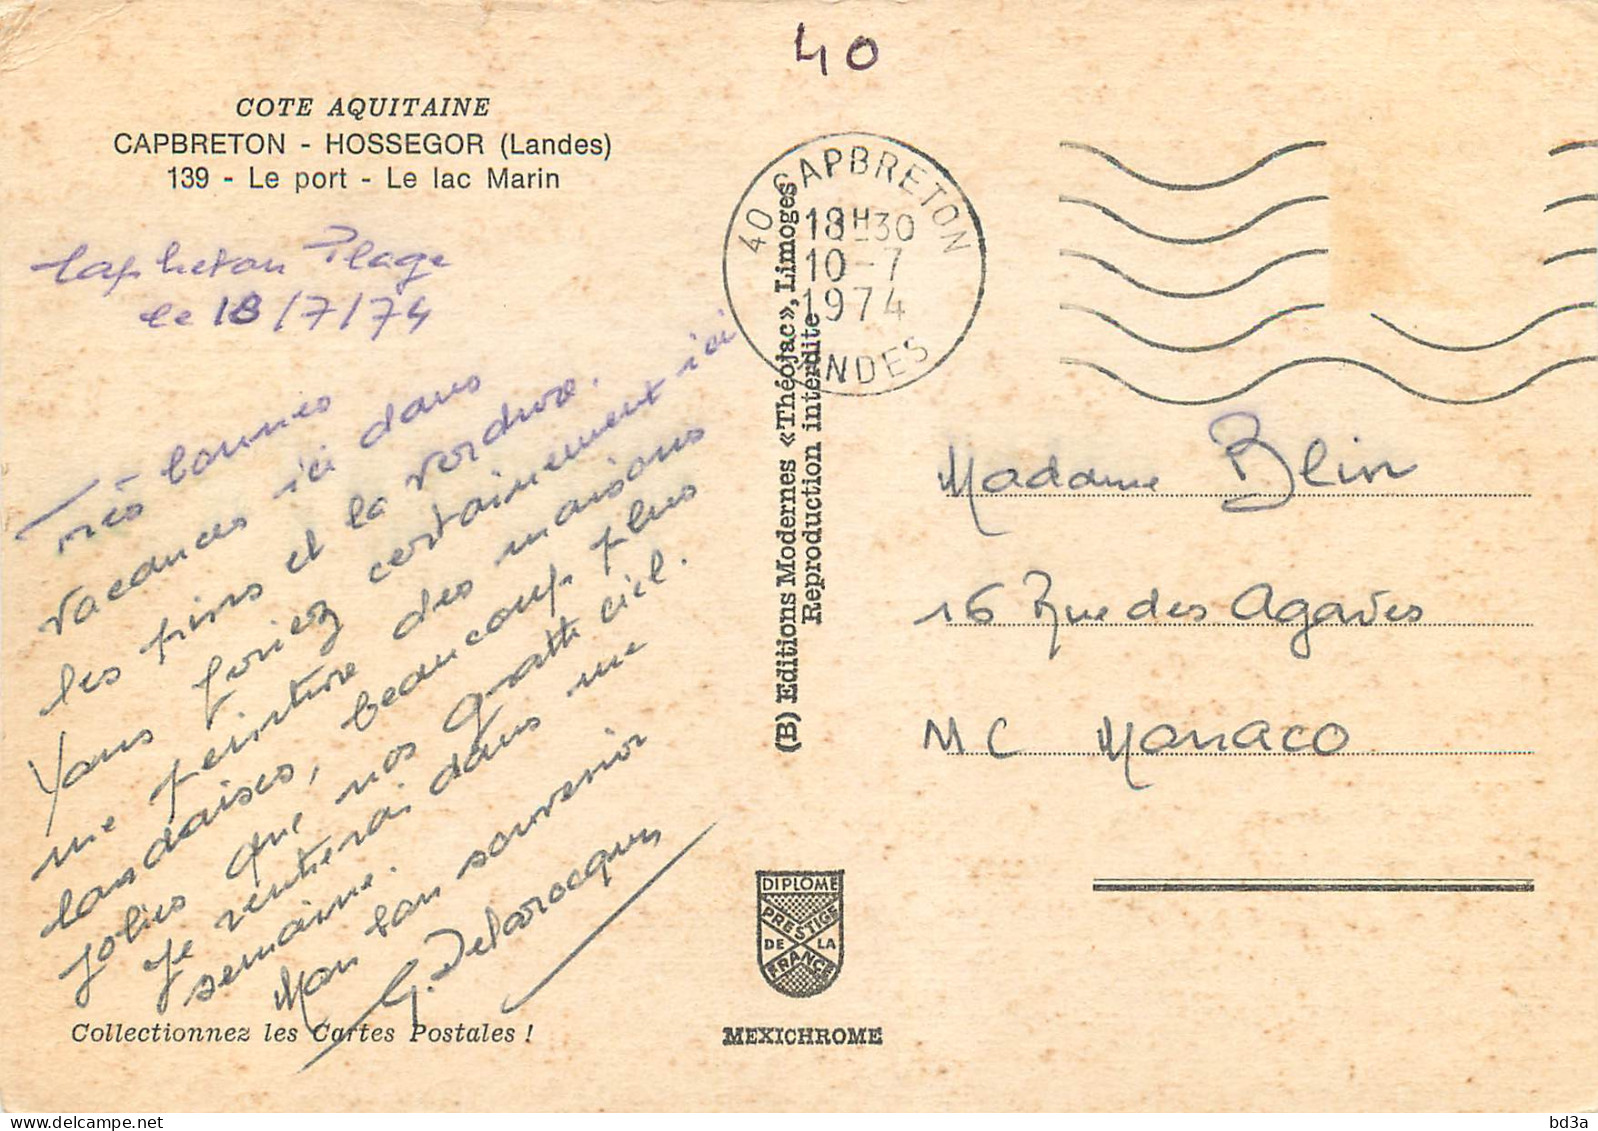 40
COTE AQUITAINE
CAPBRETON - HOSSEGOR (Landes)
139 - Le port - Le lac Marin
Capbreton Plage
le 18/7/74
Très bonnes
vacances ici dans
les pins et la verdure.
Vous feriez certainement ici
une peinture des maisons
landaises, beaucoup plus
jolies que nos gratte ciel.
Je rentrerai dans une
semaine.
Mon bon souvenir
G. Delarocque
Collectionnez les Cartes Postales !
(B) Editions Modernes «Théojac», Limoges
Reproduction interdite
40 CAPBRETON
18H30
10-7
1974
LANDES
DIPLOME
PRESTIGE
DE LA
FRANCE
MEXICHROME
Madame Blin
16 Rue des Agaves
MC Monaco
delcampe.net
bd3a